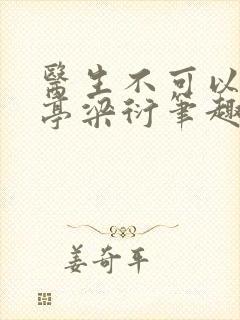 醫生不可以
亭梁衍筆趣
姜奇平